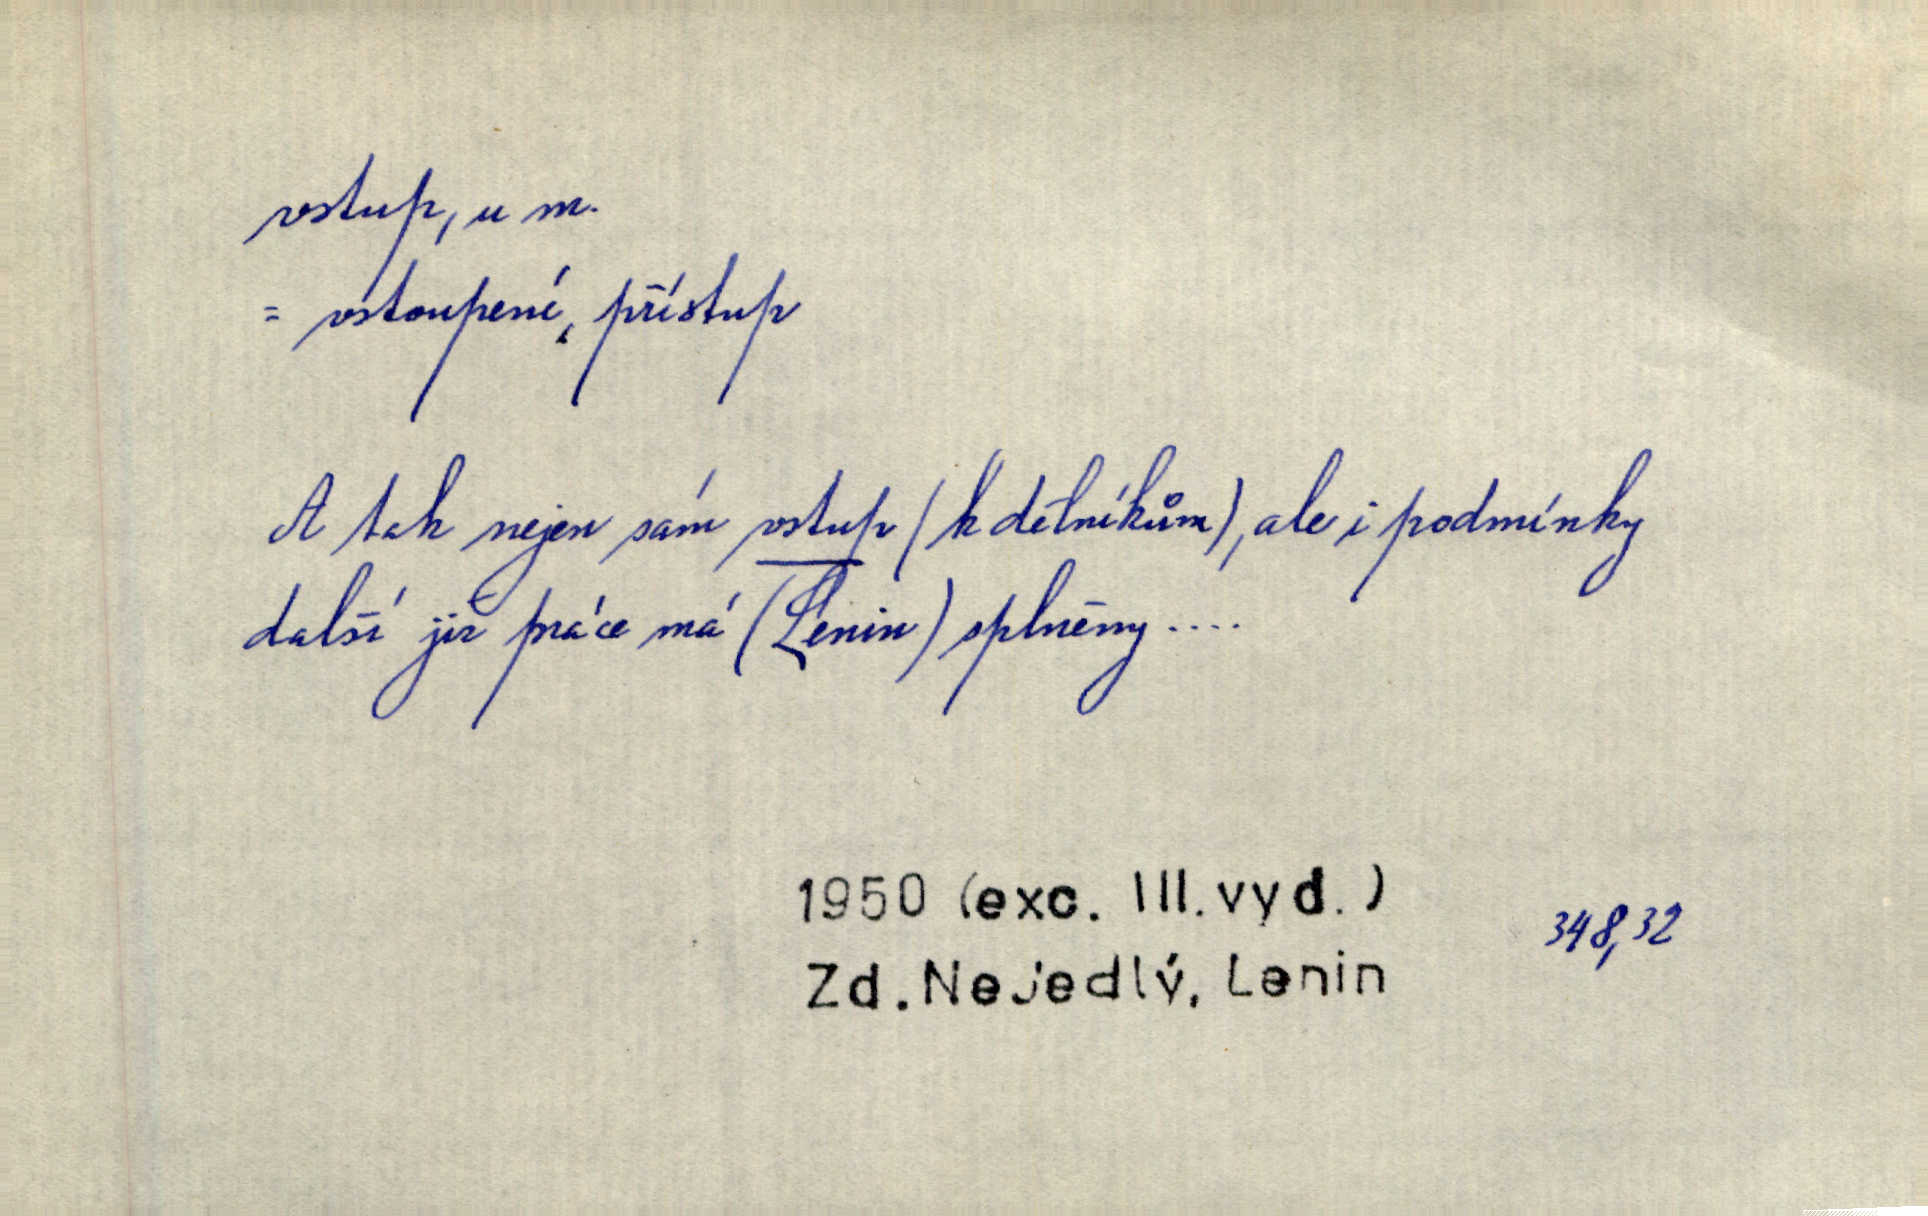 vstup, u m.
= vstoupení, přístup
A tak nejen sám vstup (k dělníkům), ale i podmínky
další již práce má (Lenin) splněny ....
1950 (exc. III. vyd.)
348,32
Zd. Nejedlý, Lenin